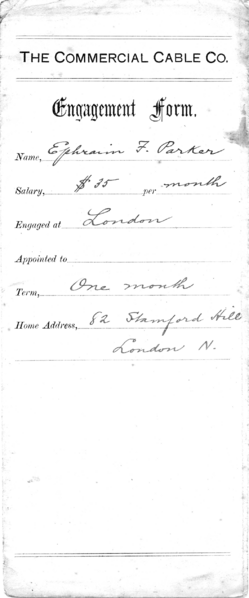 THE COMMERCIAL CABLE CO.
Engagement Form.
Name, Ephraim F. Parker
Salary, $ 35 per month
Engaged at London
Appointed to
Term, One month
Home Address, 82 Stamford Hill
London N.